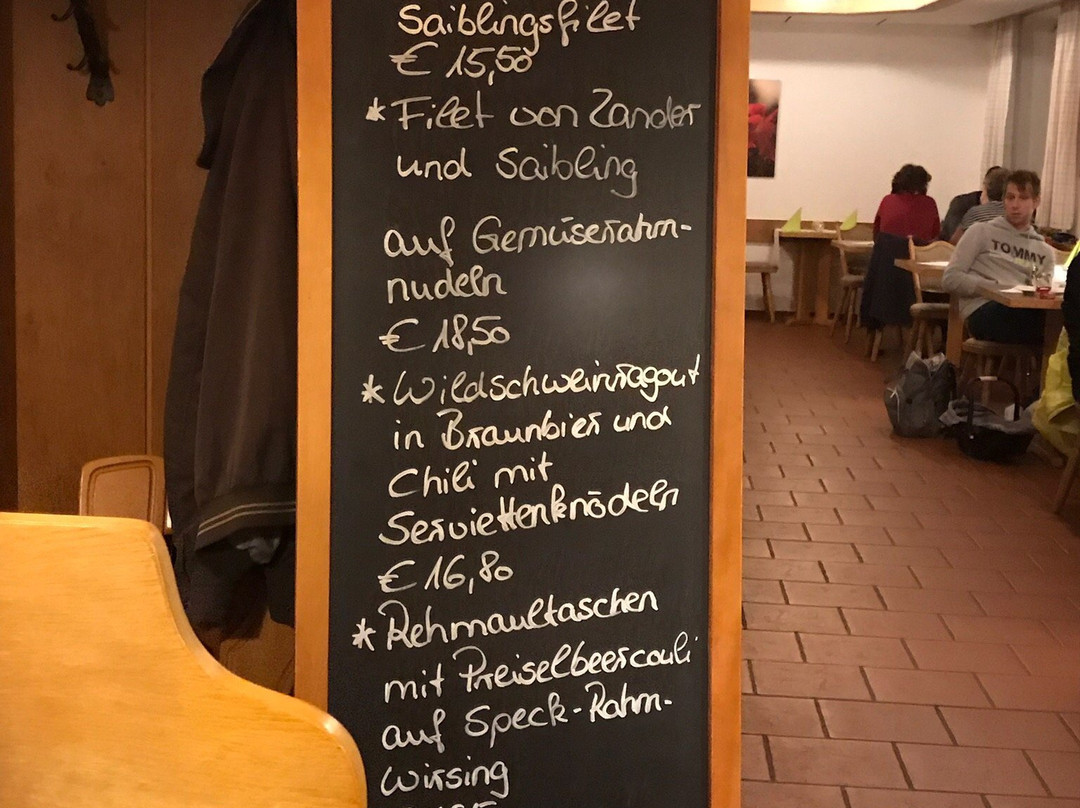 Saiblingsfilet
€ 15,50
* Filet von Zander
und Saibling
auf Gemüserahm-
nudeln
€ 18,50
* Wildschweinragout
in Braunbier und
Chili mit
Serviettenknödeln
€ 16,80
* Rehmaultaschen
mit Preiselbeercouli
auf Speck-Rahm-
wirsing
TOMMY